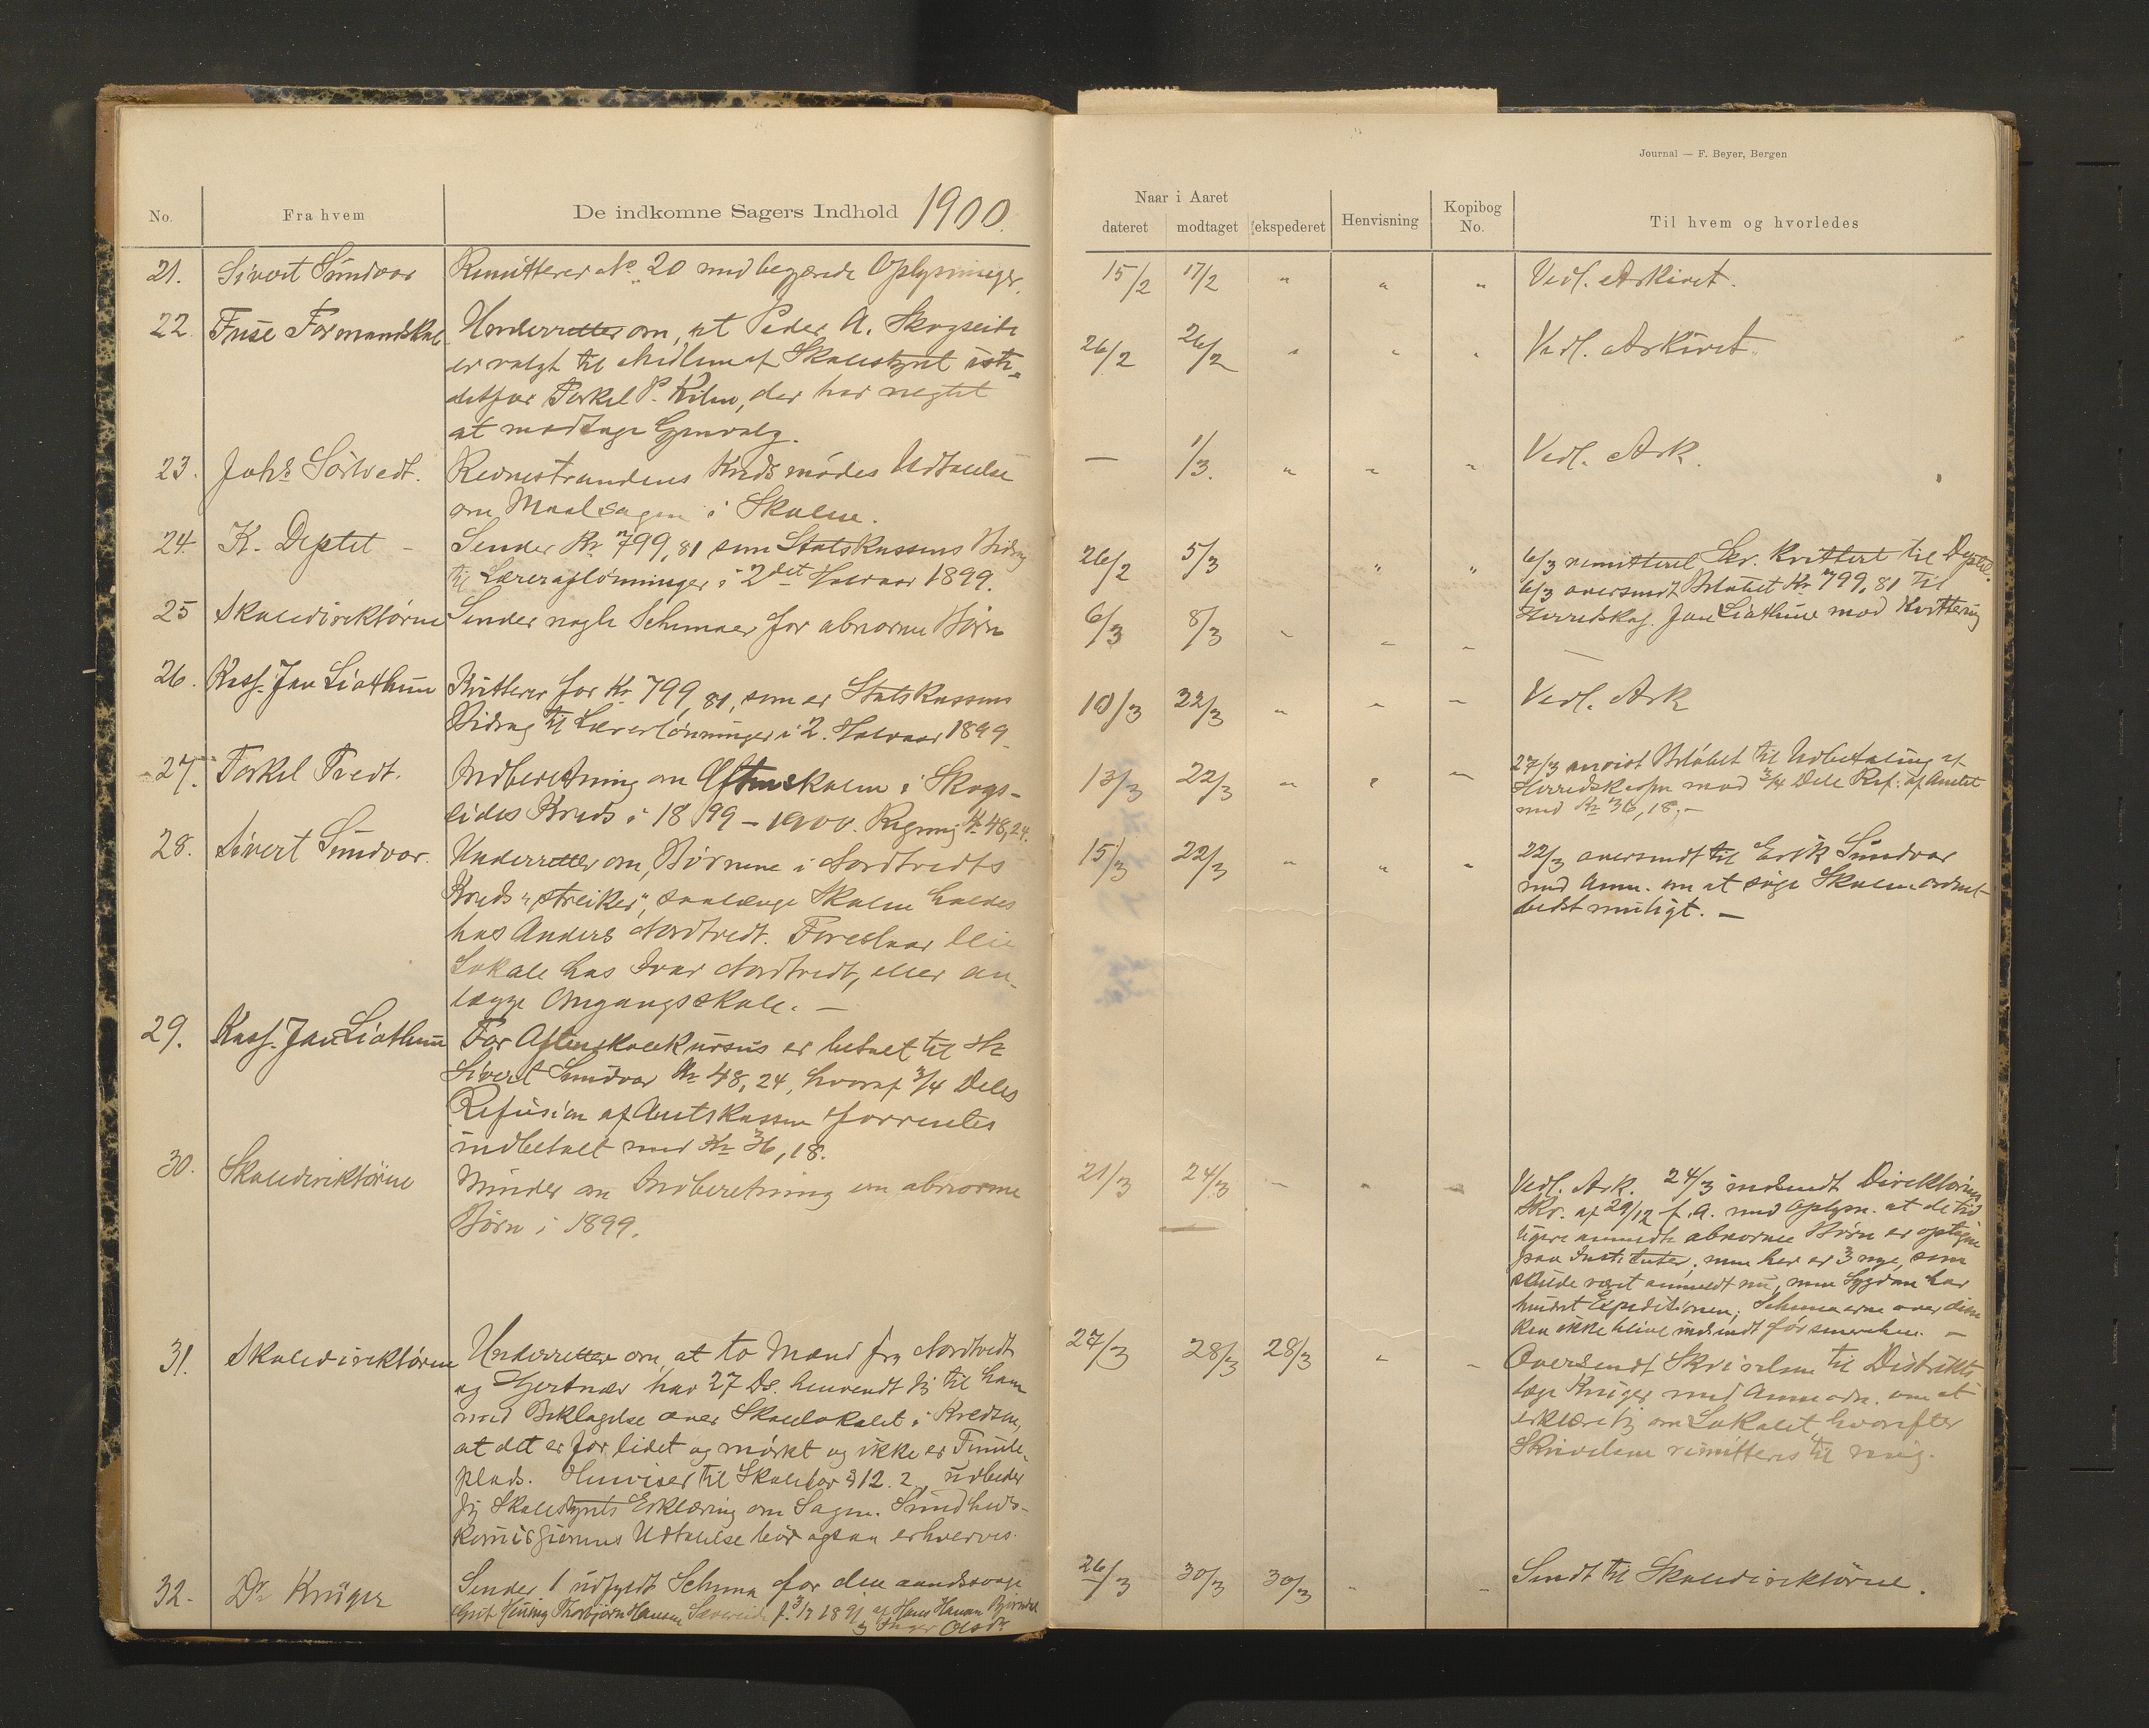 Journal — F. Beyer, Bergen
No.
Fra hvem
De indkomne Sagers Indhold 1900.
Naar i Aaret
dateret
modtaget
ekspederet
Henvisning
Kopibog No.
Til hvem og hvorledes
21. Sivert Sundvor Remitterer No 20 med begjærede Oplysninger. 15/2 17/2 " " " Vedl. Arkivet.
22. Fuse Formandskab Underretter om, at Peder A. Skogseide 26/2 26/2 " " " Vedl. Arkivet.
er valgt til Medlem af Skolestyret iste-
detfor Torkel P. Kilen, der har negtet
at modtage Gjenvalg.
23. Johs Sörtvedt. Revnestrandens Kredsmödes Udtalelse — 1/3. " " " Vedl. Ark.
om Maalsagen i Skolen.
24. K. Deptet — Sender Kr 799,81 som Statskassens Bidrag 26/2 5/3 " " 6/3 remitteret Skr. kvittert til Deptet.
til Læreraflönninger i 2det Halvaar 1899. 6/3 oversendt Belöbet Kr 799,81 til
Herredskas. Jan Liathun mod Kvittering
25 Skoledirektören Sender nogle Schemaer for abnorme Börn 6/3 8/3 " " " —
26. Kass. Jan Liathun Kvitterer for Kr 799,81, som er Statskassens 10/3 22/3 " " " Vedl. Ark
Bidrag til Lærerlönninger i 2. Halvaar 1899.
27. Torkel Tvedt. Indberetning om Aftenskolen i Skogs- 13/3 22/3 " " " 27/3 anvist Belöbet til Udbetaling af
eides Kreds i 1899–1900. Regning Kr 48,24. Herredskassen mod 3/4 Dele Ref. af Amtet
med Kr 36,18.—
28. Sivert Sundvor. Underretter om, Börnene i Nordtvedts 15/3 22/3 " " " 22/3 oversendt til Erik Sundvor
Kreds "streiker", saalænge Skolen holdes med Anm. om at söge Skolen ordnet
hos Anders Nordtvedt. Foreslaar leie bedst muligt. —
Lokale hos Ivar Nordtvedt, eller an-
lægge Omgangsskole. —
29. Kass. Jan Liathun For Aftenskolekursus er betalt til Hr
Sivert Sundvor Kr 48,24, hvoraf 3/4 Deles
Refusion af Amtskassen forventes
indbetalt med Kr 36,18.
30. Skoledirektören Minder om Indberetning om abnorme 21/3 24/3 " " " Vedl. Ark. 24/3 indsendt Direktörens
Börn i 1899. Skr. af 29/12 f.A. med Oplysn. at de tid
ligere anmeldte abnorme Börn er optagne
paa Institutter, men her er 3 nye, som
skulde været anmeldt nu, men Sygdom har
hindret Expeditionen; Schemaerne over disse
kan ikke blive indsendt för senerehen. —
31. Skoledirektören Underretter om, at to Mænd fra Nordtvedt 27/3 28/3 28/3 " " Oversendt Skrivelsen til Distrikts
og Gjertnær har 27 Ds. henvendt sig til ham læge Krüger med Anmodn. om at
med Beklagelse over Skolelokalet i Kredsen, erklære sig om Lokalet, hvorefter
at det er for lidet og mörkt og ikke er Tumle- Skrivelsen remitteres til mig.
plads. Henviser til Skolelov § 12. 2, udbeder
sig Skolestyrets Erklæring om Sagen. Sundheds-
kommissionens Udtalelse bör ogsaa erhverves.
32. Dr Krüger Sender 1 udfyldt Schema for den aandssvage 26/3 30/3 30/3 " " Sendt til Skoledirektören.
Gut Thorbjörn Hansen f. 3/7 1891 af Hans Hansen
og Inger Olsdr